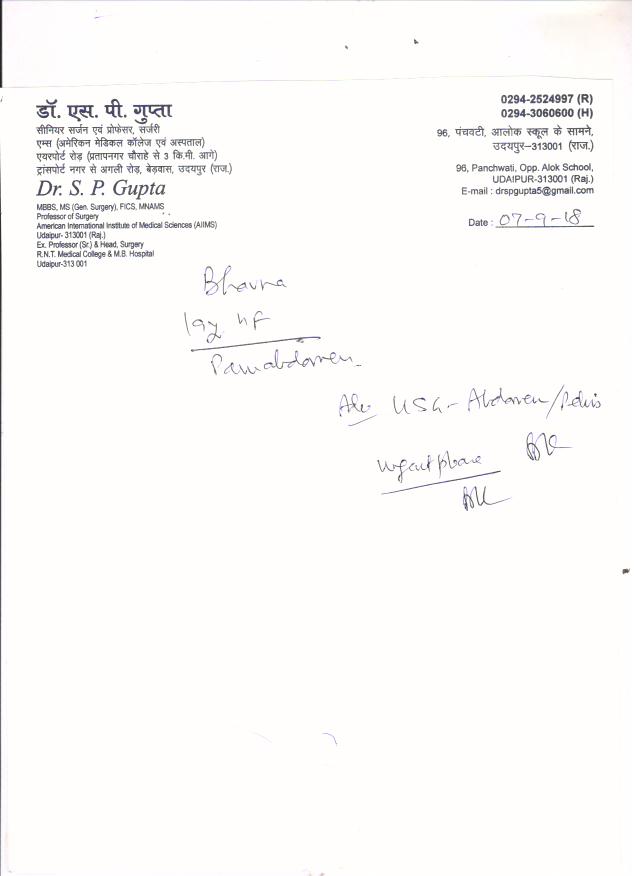 डॉ. एस. पी. गुप्ता
सीनियर सर्जन एवं प्रोफेसर, सर्जरी
एम्स (अमेरिकन मेडिकल कॉलेज एवं अस्पताल)
एयरपोर्ट रोड़ (प्रतापनगर चौराहे से 3 कि.मी. आगे)
ट्रांसपोर्ट नगर से अगली रोड़, बेड़वास, उदयपुर (राज.)
Dr. S. P. Gupta
MBBS, MS (Gen. Surgery), FICS, MNAMS
Professor of Surgery
American International Institute of Medical Sciences (AIIMS)
Udaipur- 313001 (Raj.)
Ex. Professor (Sr.) & Head, Surgery
R.N.T. Medical College & M.B. Hospital
Udaipur-313 001
0294-2524997 (R)
0294-3060600 (H)
96, पंचवटी, आलोक स्कूल के सामने,
उदयपुर–313001 (राज.)
96, Panchwati, Opp. Alok School,
UDAIPUR-313001 (Raj.)
E-mail : drspgupta5@gmail.com
Date : 07-9-18
Bhavna
19y
Pain abdomen
Adv USG - Abdomen/Pelvis
urgent please